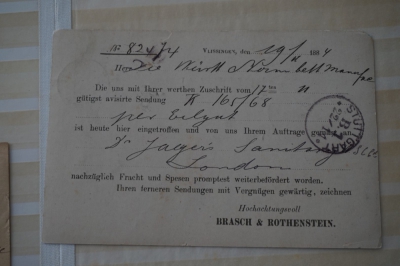 № 82474 VLISSINGEN, den 19/11 1884
Die Württ
Die uns mit Ihrer werthen Zuschrift vom 17 11
gütigst avisirte Sendung K 165/68
per Eilgut
ist heute hier eingetroffen und von uns Ihrem Auftrage gemäss an
Dr Jaeger's Sanitary
London
nachzüglich Fracht und Spesen promptest weiterbefördert worden.
Ihren ferneren Sendungen mit Vergnügen gewärtig, zeichnen
Hochachtungsvoll
BRASCH & ROTHENSTEIN.
STUTTGART